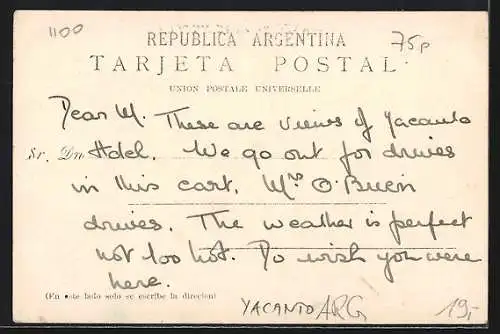 1100
75p
REPUBLICA ARGENTINA
TARJETA POSTAL
UNION POSTALE UNIVERSELLE
Dear M. These are views of Yacanto
Sr. Dn Hotel. We go out for drives
in this cart. Mrs O'Brien
drives. The weather is perfect
not too hot. Do wish you were
here.
(En este lado solo se escribe la direccion)
YACANTO ARG
19,-